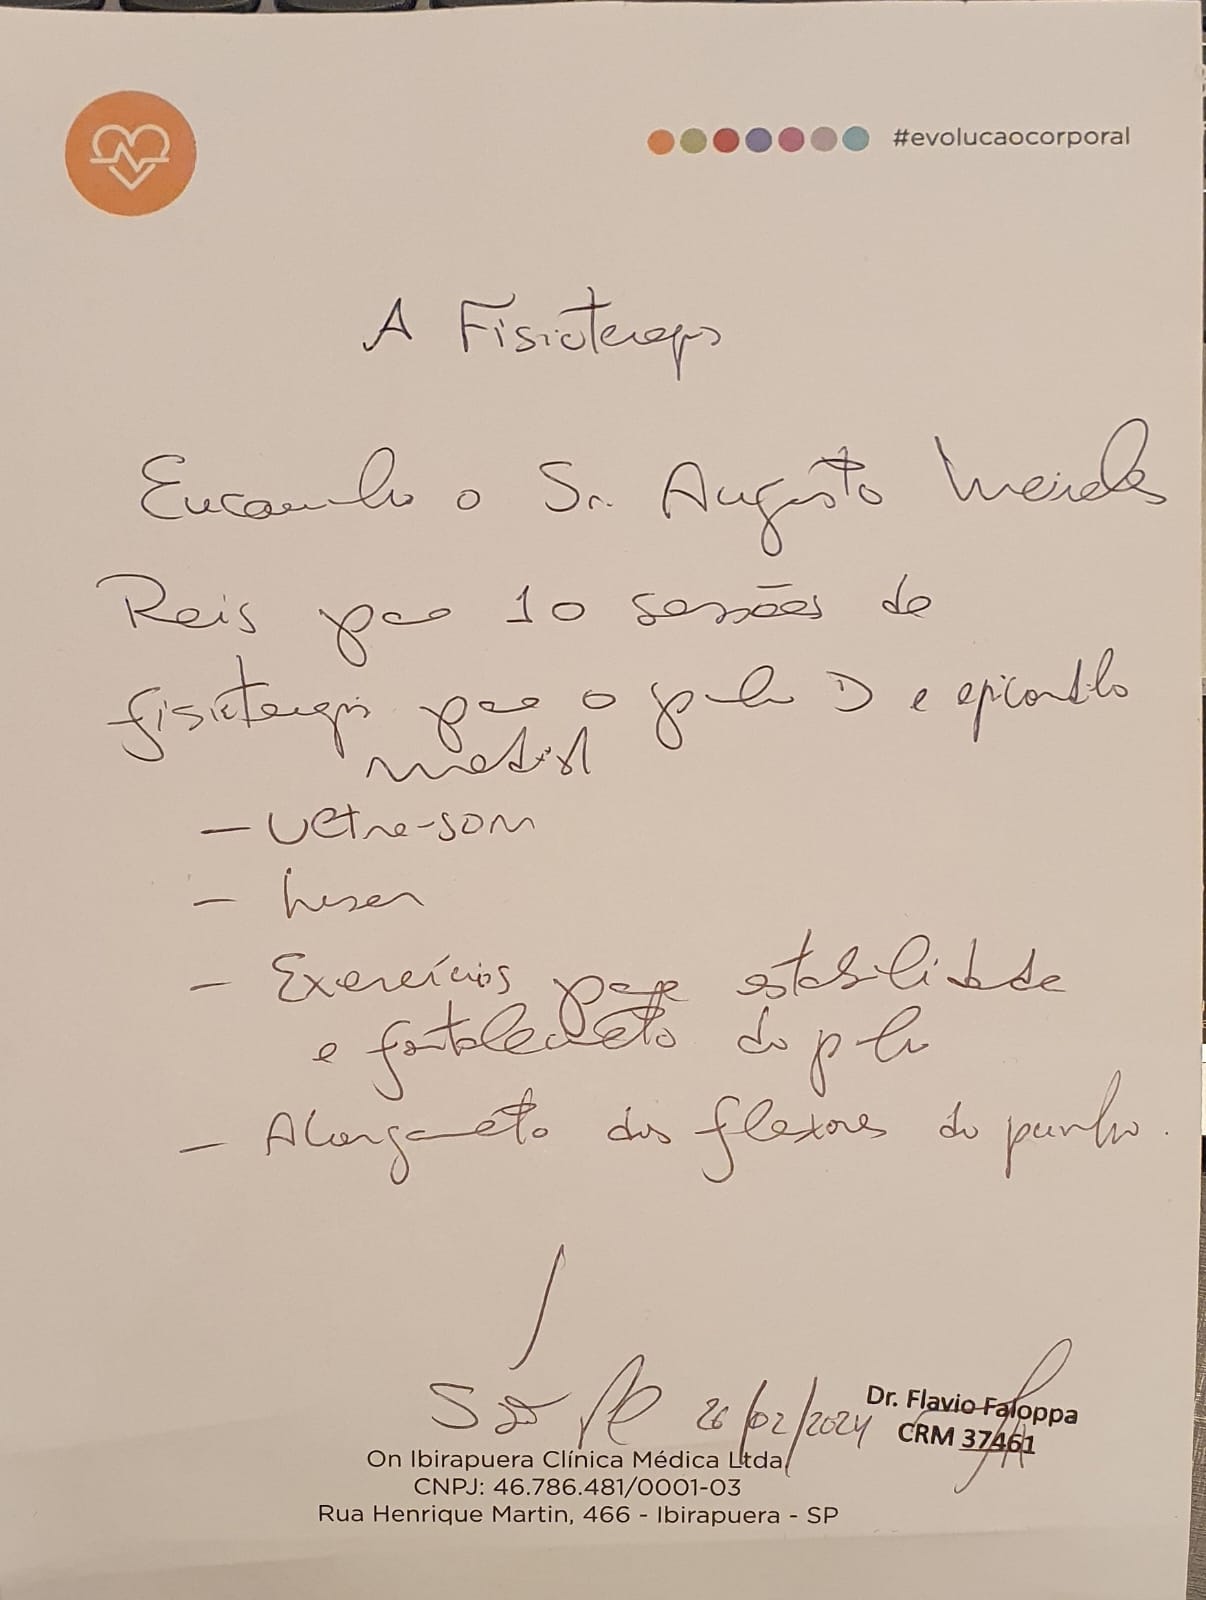 #evolucaocorporal
A Fisioterapia
Encaminho o Sr. Augusto Meireles
Reis para 10 sessões de
fisioterapia para o punho D e epicondilo
medial
- Ultra-som
- Laser
- Exercícios para estabilidade
e fortalecimento do punho
- Alongamento dos flexores do punho.
São Paulo 26/02/2024
Dr. Flavio Faloppa
CRM 37461
On Ibirapuera Clínica Médica Ltda
CNPJ: 46.786.481/0001-03
Rua Henrique Martin, 466 - Ibirapuera - SP